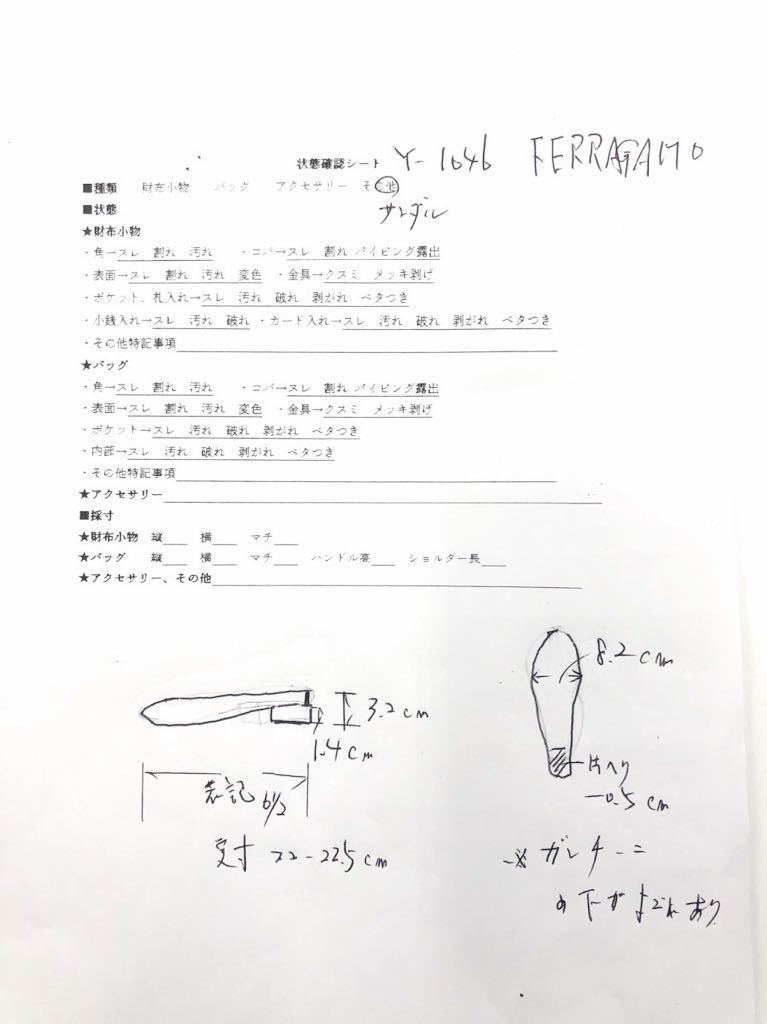 状態確認シート Y-1046 FERRAGAMO
■種類 財布小物 バッグ アクセサリー その他
■状態 サンダル
★財布小物
・角→スレ 割れ 汚れ ・コバ→スレ 割れ パイピング露出
・表面→スレ 割れ 汚れ 変色 ・金具→クスミ メッキ剥げ
・ポケット、札入れ→スレ 汚れ 破れ 剥がれ ベタつき
・小銭入れ→スレ 汚れ 破れ ・カード入れ→スレ 汚れ 破れ 剥がれ ベタつき
・その他特記事項
★バッグ
・角→スレ 割れ 汚れ ・コバ→スレ 割れ パイピング露出
・表面→スレ 割れ 汚れ 変色 ・金具→クスミ メッキ剥げ
・ポケット→スレ 汚れ 破れ 剥がれ ベタつき
・内部→スレ 汚れ 破れ 剥がれ ベタつき
・その他特記事項
★アクセサリー
■採寸
★財布小物 縦 横 マチ
★バッグ 縦 横 マチ ハンドル高 ショルダー長
★アクセサリー、その他
8.2cm
3.2cm
1.4cm
片へり
-0.5cm
表記 6 1/2
実寸 22-22.5cm
※ガンチーニ
の下がよごれあり